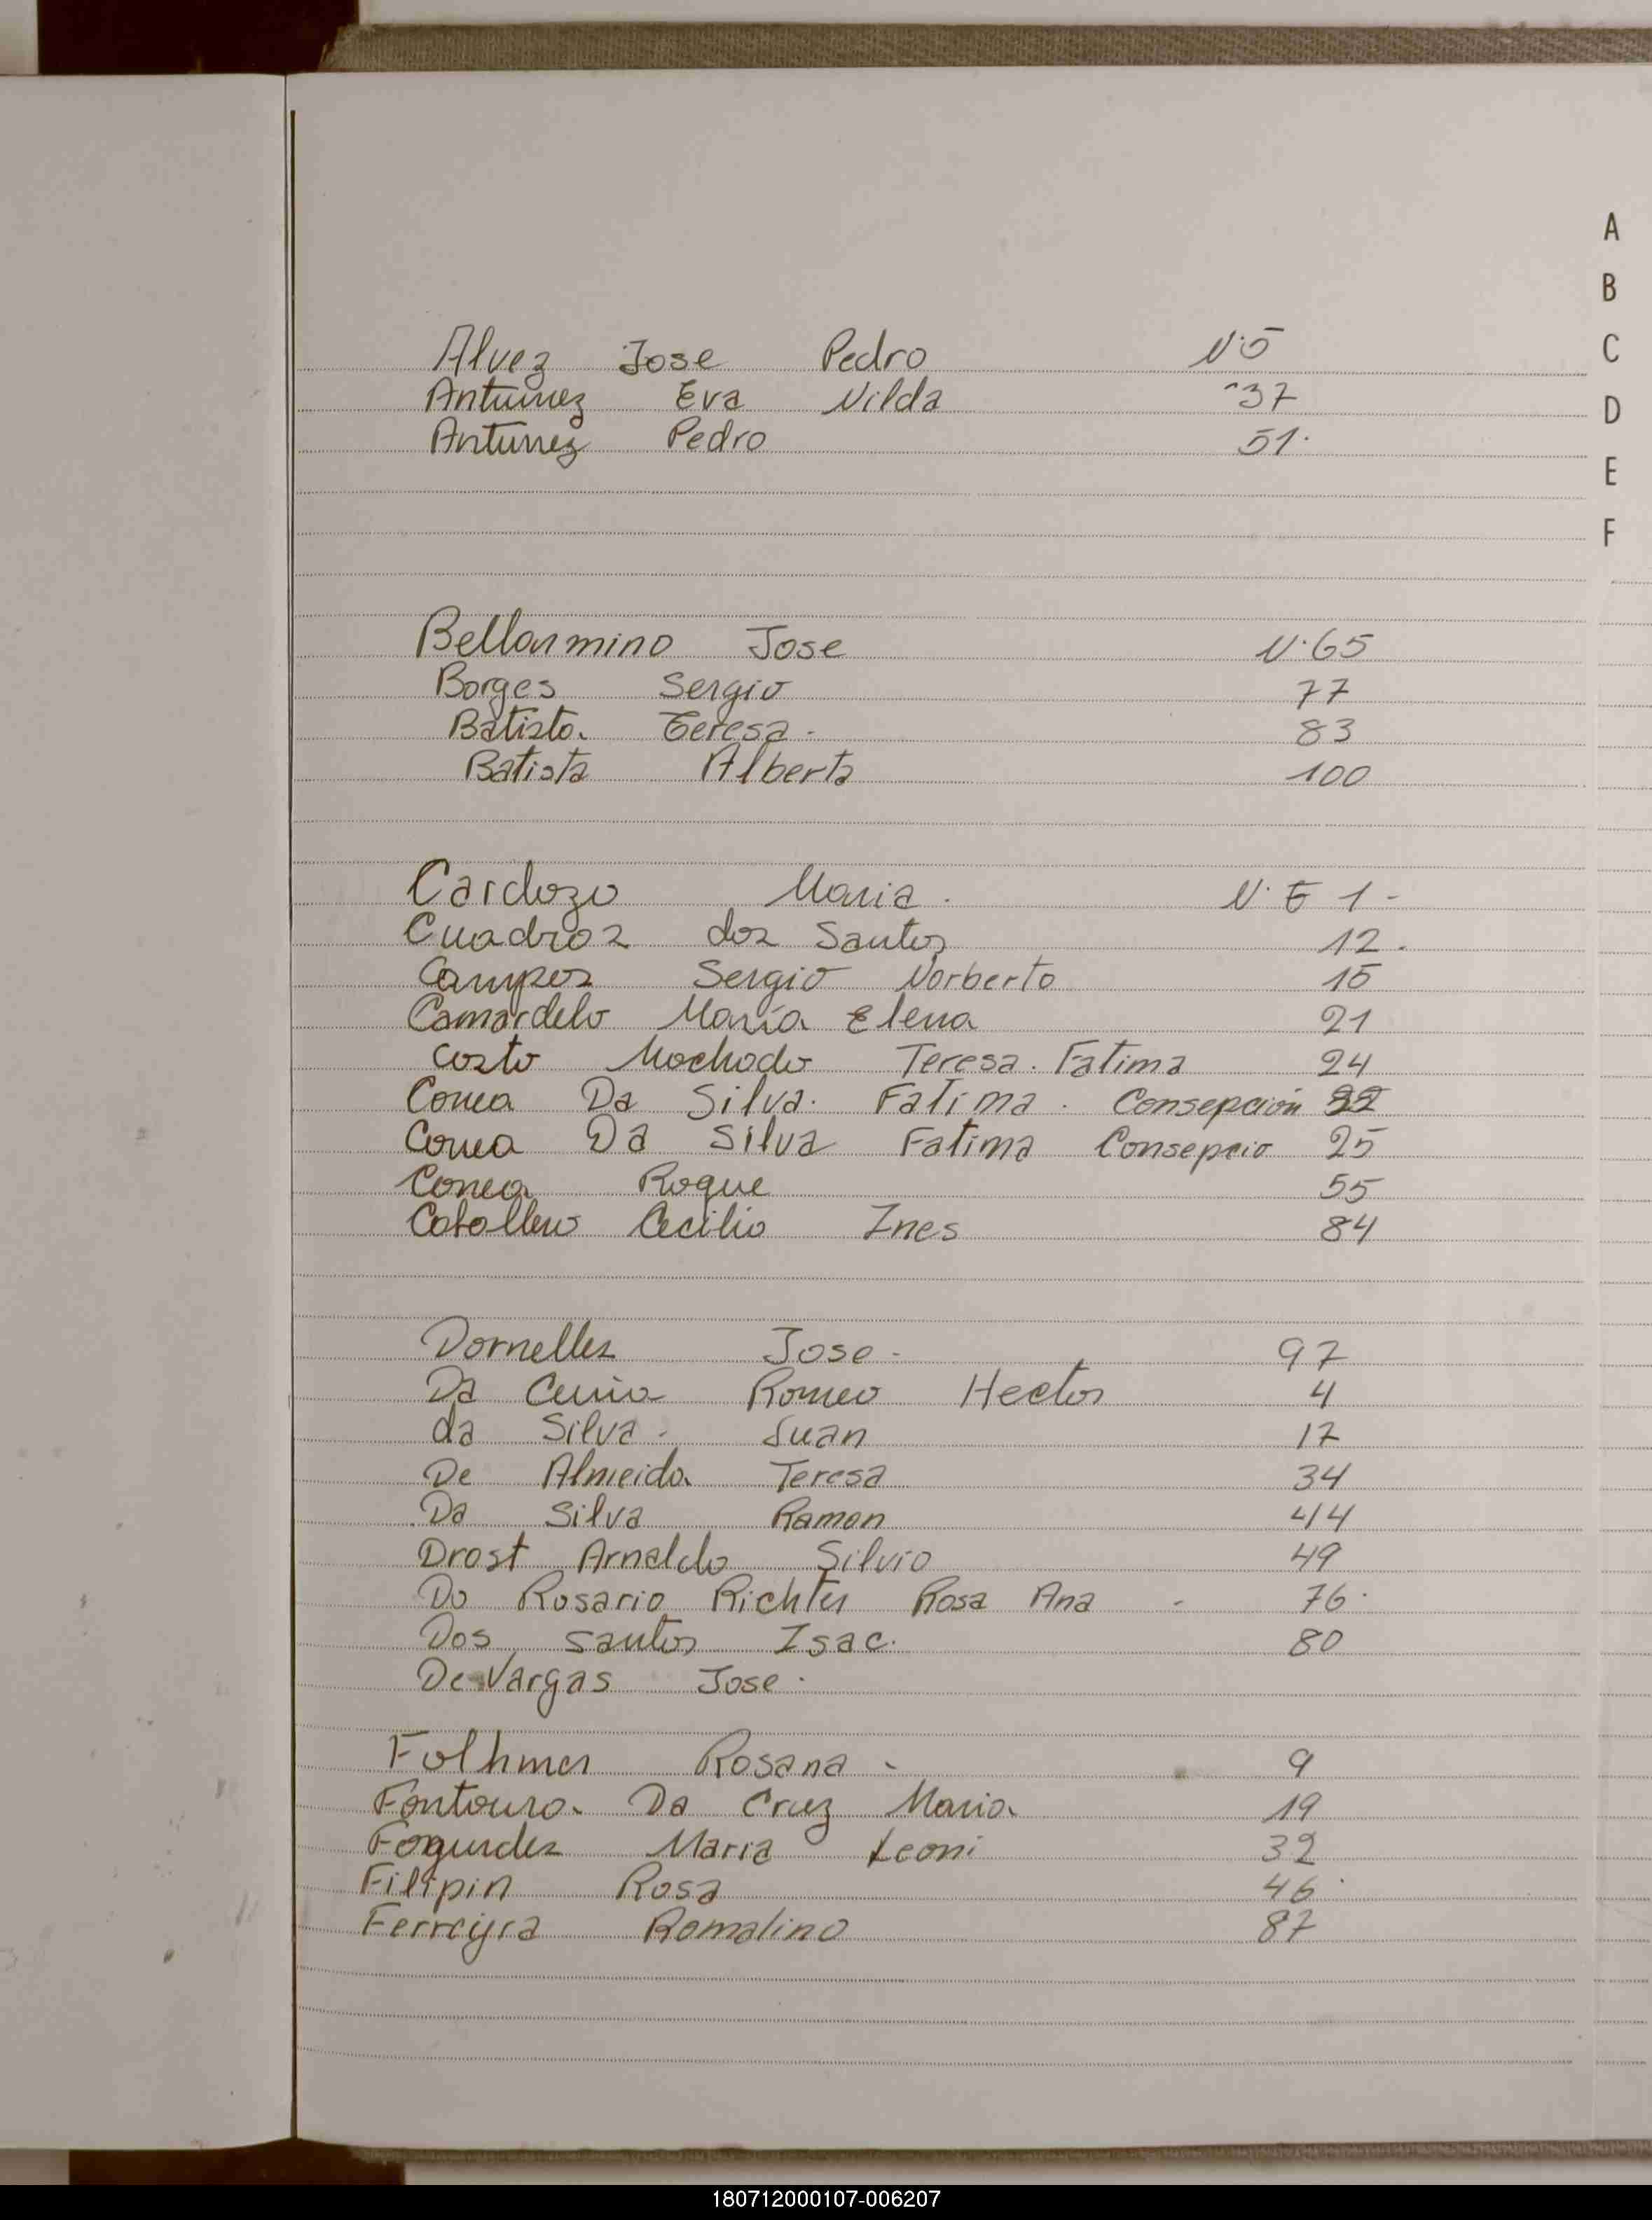 A
B
C
D
E
F
Alvez Jose Pedro N.5
Antunez Eva Nilda "37
Antunez Pedro 51.
Bellarmino Jose N.65
Borges Sergio 77
Batista. Teresa. 83
Batista Alberta 100
Cardozo Maria. N. 1-
Cuadros dos Santos 12.
Campos Sergio Norberto 15
Camardelo María Elena 21
Costo Machado Teresa. Fatima 24
Correa Da Silva. Fatima. Consepcion
Correa Da Silva Fatima Consepcio 25
Correa Roque 55
Caballero Cecilio Ines 84
Dornelles Jose. 97
Da Romeo Hector 4
da Silva. Juan 17
De Almeida Teresa 34
Da Silva Ramon 44
Drost Arnaldo Silvio 49
Do Rosario Richter Rosa Ana - 76.
Dos santos Isac. 80
De Vargas Jose.
Folhmer Rosana - 9
Fontoura. Da Cruz Maria 19
Fagundes Maria Leoni 32
Filipin Rosa 46.
Ferreyra Romalino 87
180712000107-006207